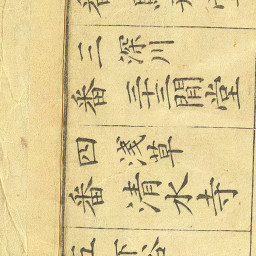 番
三 深川
番 三十三間堂
四 淺草
番 清水寺
五 下谷